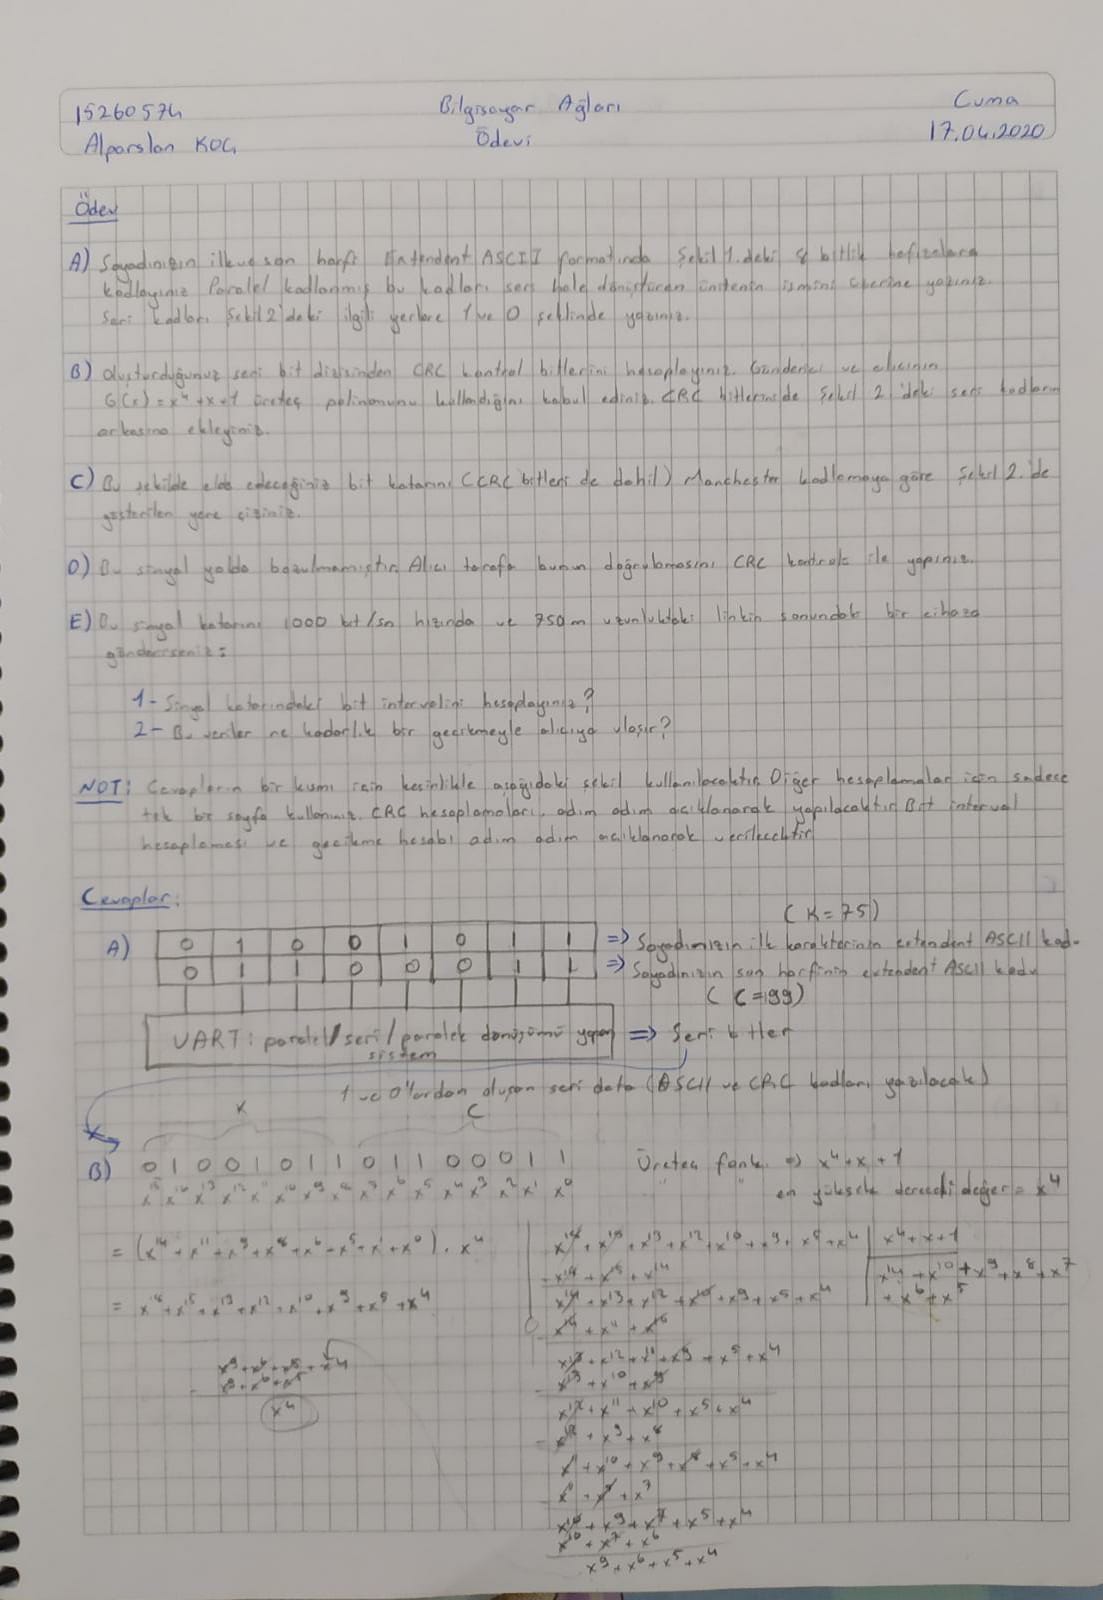 15260574
Alparslan KOÇ
Bilgisayar Ağları
Ödevi
Cuma
17.04.2020
Ödev
A) Soyadınızın ilk ve son harfi Extendent ASCII formatında Şekil 1.deki 8 bitlik hafızalara
kodlayınız Paralel kodlanmış bu kodları seri hale dönüştüren ünitenin ismini üzerine yazınız.
Seri kodları Şekil 2'deki ilgili yerlere 1 ve 0 şeklinde yazınız.
B) Oluşturduğunuz seri bit dizisinden CRC kontrol bitlerini hesaplayınız. Gönderici ve alıcının
G(x)=x⁴+x+1 üreteç polinomunu kullandığını kabul ediniz. CRC bitlerini de Şekil 2'deki seri kodların
arkasına ekleyiniz.
C) Bu şekilde elde edeceğiniz bit katarını (CRC bitleri de dahil) Manchester kodlamaya göre Şekil 2.de
gösterilen yere çiziniz.
D) Bu sinyal yolda bozulmamıştır. Alıcı tarafa bunun doğrulamasını CRC kontrolü ile yapınız.
E) Bu sinyal katarını 1000 bit/sn hızında ve 750m uzunluktaki linkin sonundaki bir cihaza
gönderirseniz:
1- Sinyal katarındaki bit intervalini hesaplayınız?
2- Bu veriler ne kadarlık bir gecikmeyle alıcıya ulaşır?
NOT: Cevapların bir kısmı için kesinlikle aşağıdaki şekil kullanılacaktır. Diğer hesaplamalar için sadece
tek bir sayfa kullanınız. CRC hesaplamaları, adım adım açıklanarak yapılacaktır. Bit interval
hesaplaması ve gecikme hesabı adım adım açıklanarak verilecektir
Cevaplar:
(K=75)
A) 0 1 0 0 1 0 1 1 => Soyadımızın ilk karakterinin extendent ASCII kod.
0 1 1 0 0 0 1 1 => Soyadımızın son harfinin extendent ASCII kodu
(C=99)
UART: paralel/seri/paralel dönüşümü yapan => Seri bitler
sistem
1 ve 0'lardan oluşan seri data (ASCII ve CRC kodları yazılacak)
K C
B) 0 1 0 0 1 0 1 1 0 1 1 0 0 0 1 1 Üreteç fonk. => x⁴+x+1
x¹⁵ x¹⁴ x¹³ x¹² x¹¹ x¹⁰ x⁹ x⁸ x⁷ x⁶ x⁵ x⁴ x³ x² x¹ x⁰ en yüksek dereceli değer = x⁴
= (x¹⁴+x¹¹+x⁹+x⁸+x⁶+x⁵+x¹+x⁰).x⁴
= x¹⁸+x¹⁵+x¹³+x¹²+x¹⁰+x⁹+x⁵+x⁴
x⁹+x⁶+x⁵+x⁴
x⁹+x⁶+x⁵
x⁴
x⁴+x+1
x¹⁴+x¹⁰+x⁹+x⁸+x⁷
+x⁶+x⁵
x¹³+x¹²+x¹¹+x⁹+x⁵+x⁴
x¹³+x¹⁰+x⁹
x¹²+x¹¹+x¹⁰+x⁵+x⁴
x¹²+x⁹+x⁸
x¹¹+x¹⁰+x⁹+x⁸+x⁵+x⁴
x¹⁰+x⁹+x⁷+x⁵+x⁴
x¹⁰+x⁷+x⁶
x⁹+x⁶+x⁵+x⁴